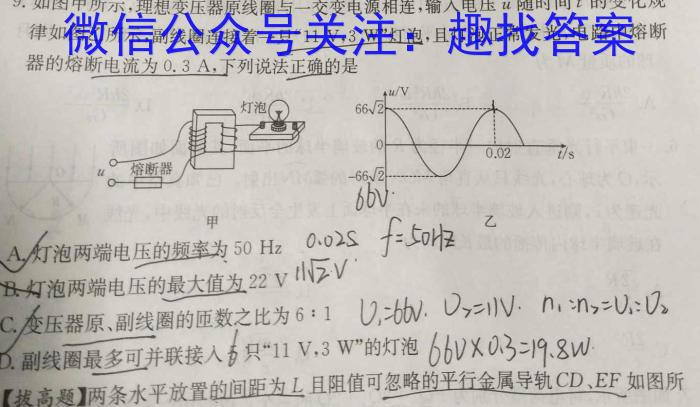 9. 如图甲所示,理想变压器原线圈与一交变电源相连,输入电压 u 随时间 t 的变化规
微信公众号关注:趣找答案
律如图
器的熔断电流为 0.3 A,下列说法正确的是
灯泡
u
熔断器
甲
u/V
66√2
0
0.02
t/s
-66√2
乙
66V.
A. 灯泡两端电压的频率为 50 Hz 0.02s f=50Hz
B. 灯泡两端电压的最大值为 22 V 11√2 V
C. 变压器原、副线圈的匝数之比为 6∶1 U₁=66V. U₂=11V. n₁:n₂=U₁:U₂
D. 副线圈最多可并联接入 6 只“11 V,3 W”的灯泡 66V×0.3=19.8W.
【拔高题】两条水平放置的间距为 L 且阻值可忽略的平行金属导轨 CD、EF 如图所